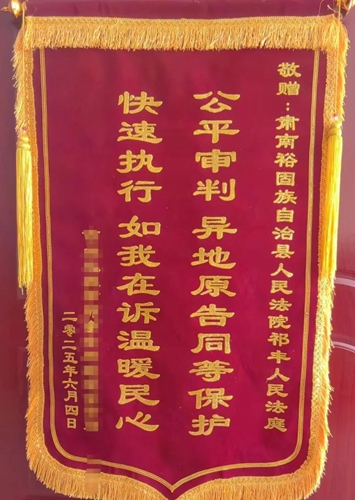 敬赠：肃南裕固族自治县人民法院祁丰人民法庭
公平审判 异地原告同等保护
快速执行 如我在诉温暖民心
二零二五年六月四日